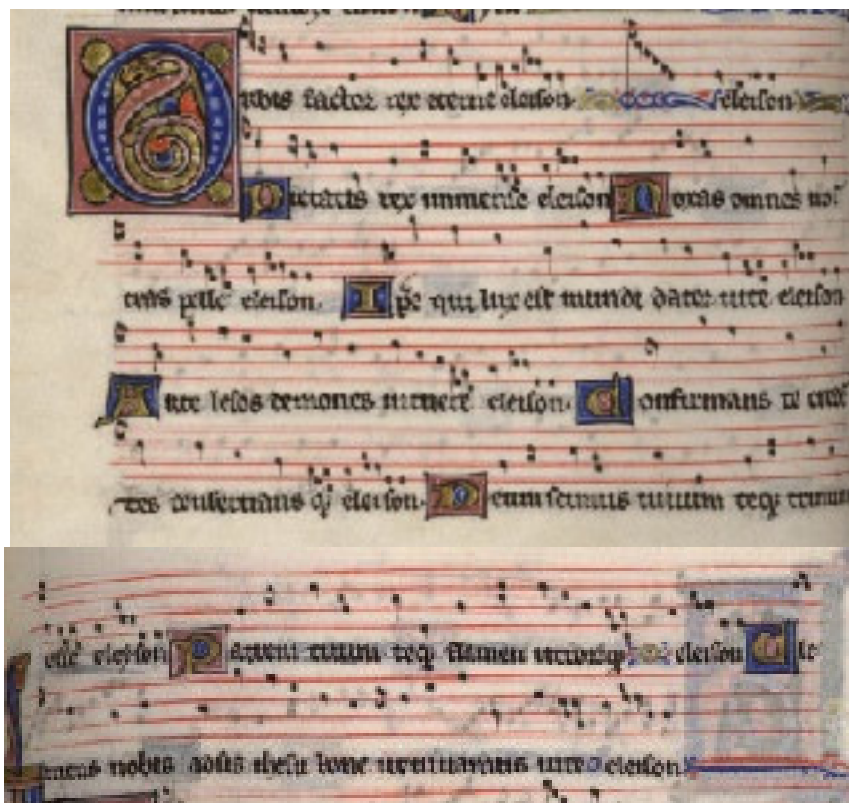 Orbis factor rex eterne eleison eleison
Pietatis rex immense eleison Noxas omnes nos
tras pelle eleison. Ipse qui lux est mundi dator uite eleison
Arte lesos demones intuere eleison. Confirmans te creden
tes conseruans q; eleison. Deum scimus unum teq; trinum
esse eleison Patrem tuum teq; flamen utrorūq; eleison Cle
mens nobis adsis ihesu bone ut uiuamus in te eleison